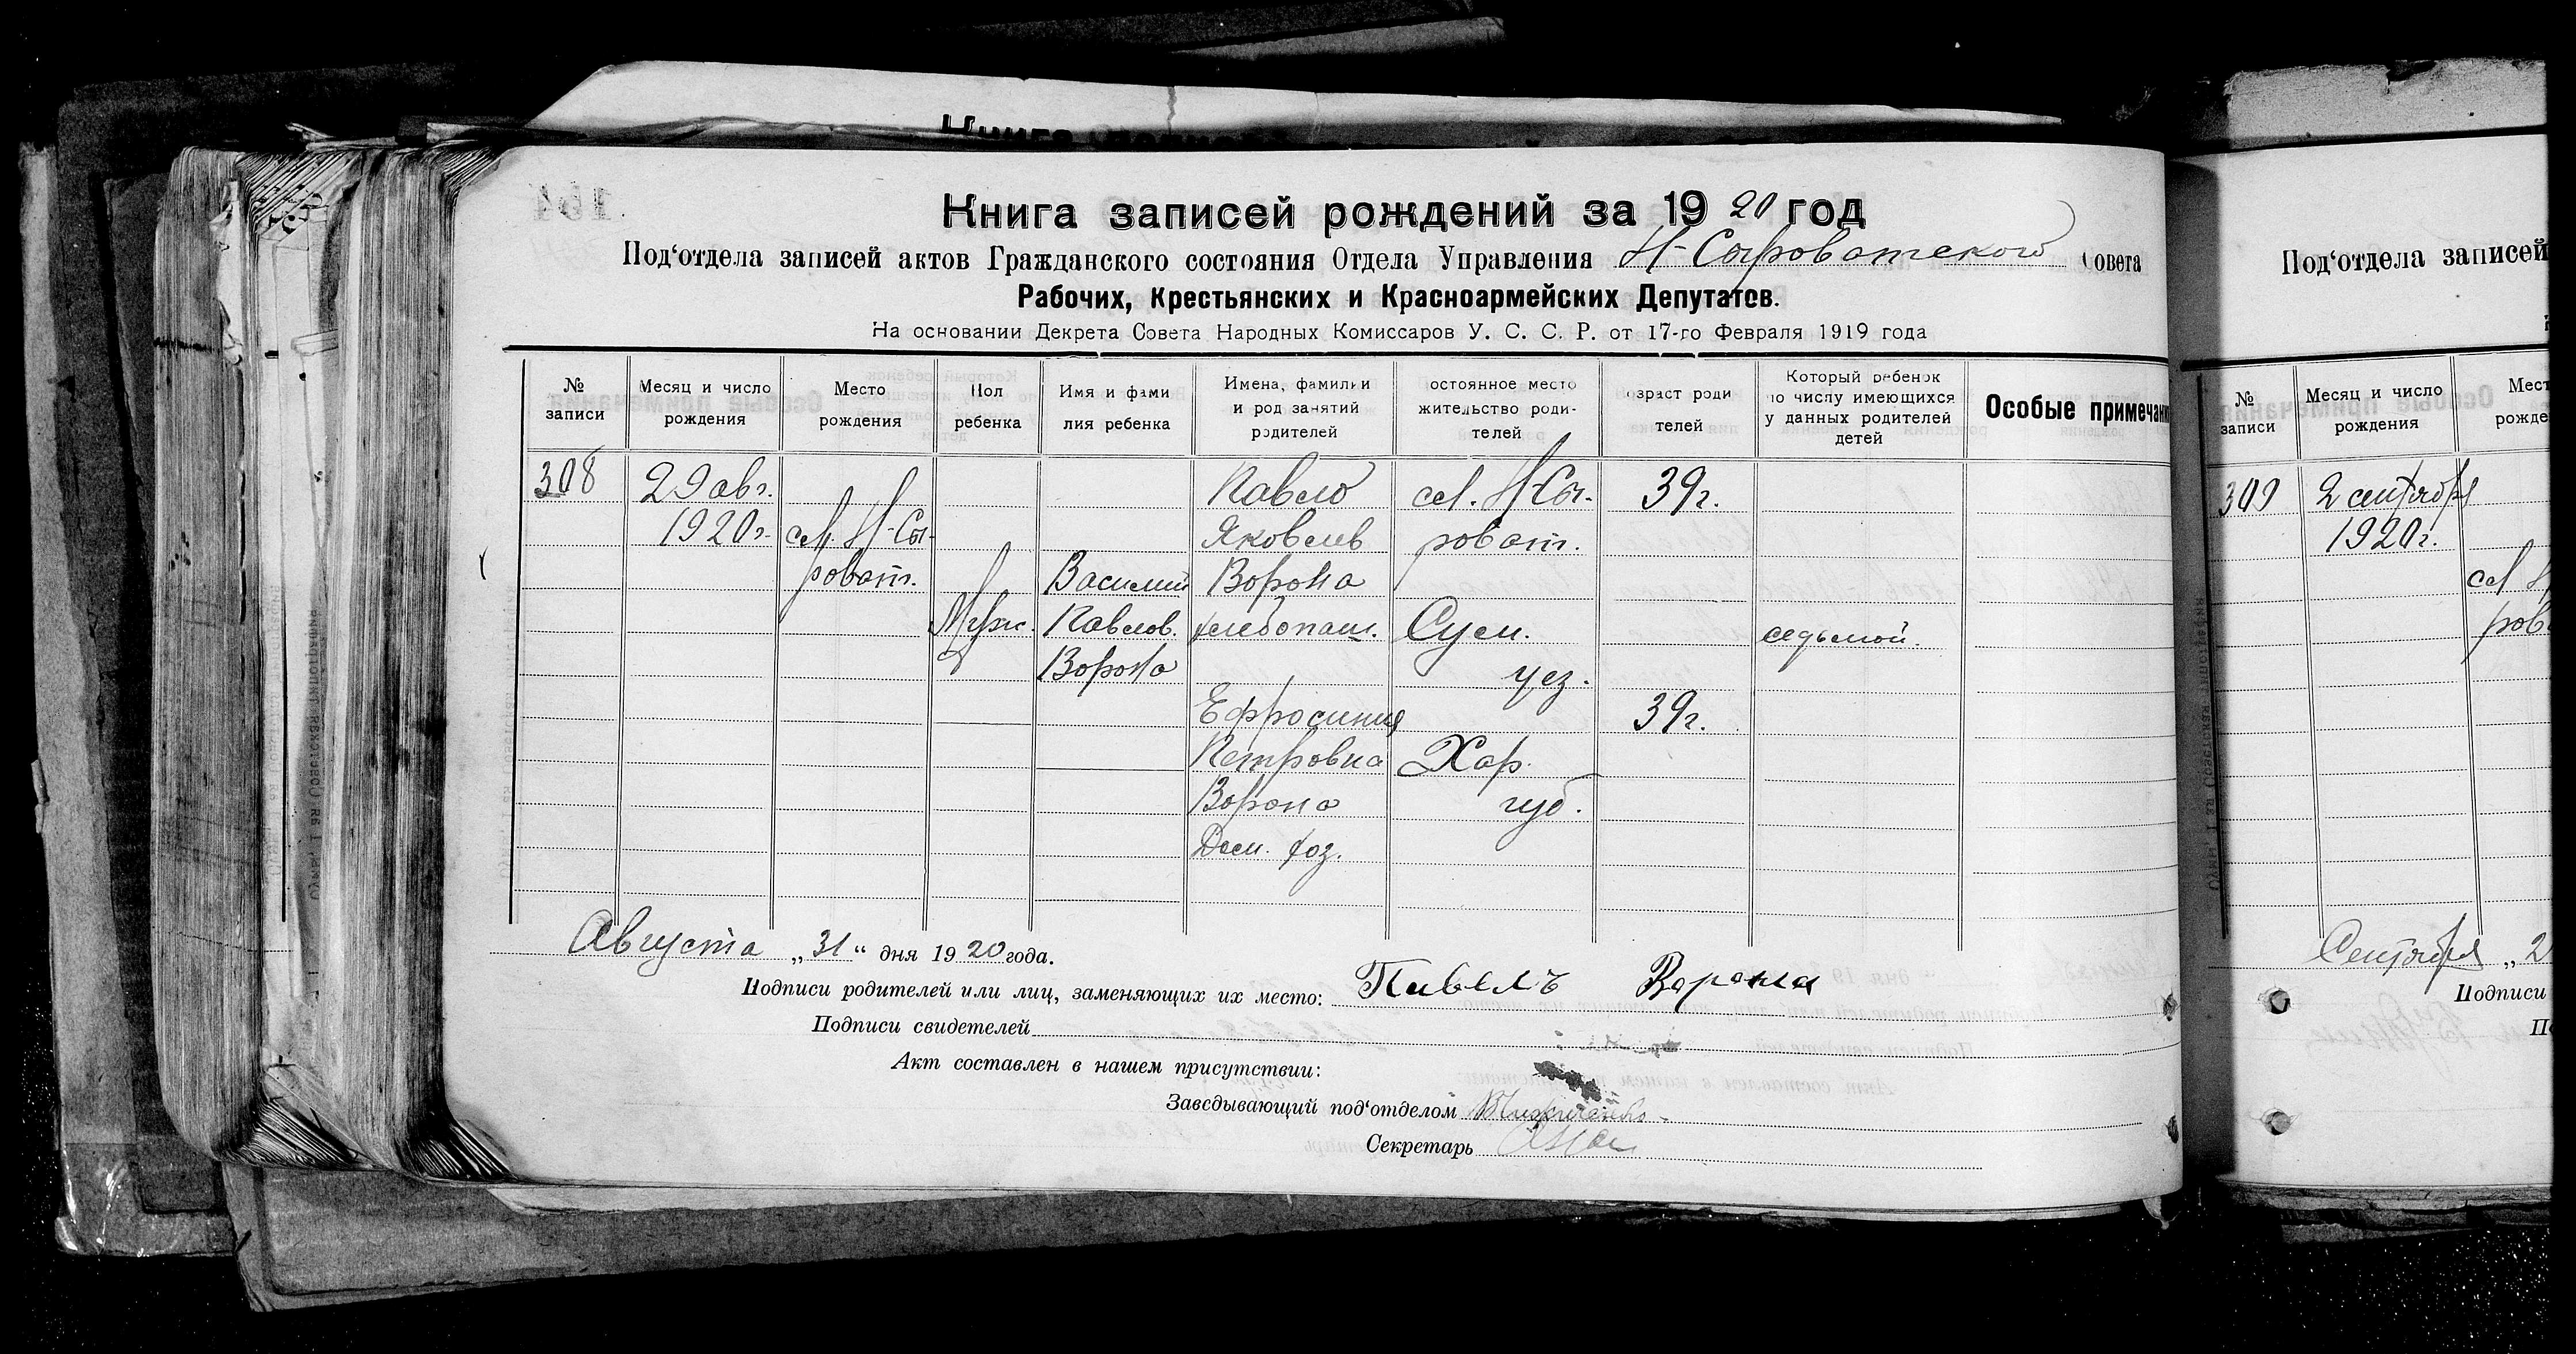 Книга записей рождений за 1920 год
Под‘отдела записей актов Гражданского состояния Отдела Управления Н-Сыроватского Совета
Рабочих, Крестьянских и Красноармейских Депутатов.
На основании Декрета Совета Народных Комиссаров У. С. С. Р. от 17-го Февраля 1919 года
№ записи
Месяц и число рождения
Место рождения
Пол ребенка
Имя и фами
лия ребенка
Имена, фамилии
и род занятий
родителей
остоянное место
жительство роди-
телей
озраст роди
телей
Который ребенок
по числу имеющихся
у данных родителей
детей
Особые примечани
308
29 авг.
1920г.
сел. Н-Сы-
роват.
Муж.
Василий
Павлов.
Ворона
Павел
Яковлев
Ворона
хлебопаш.
Ефросиния
Петровна
Ворона
Дом. хоз.
сел. Н-Сы-
роват.
Сум.
уез.
Хар.
губ.
39г.
39г.
седьмой.
Августа „31“ дня 1920 года.
Подписи родителей или лиц, заменяющих их место: Павелъ Ворона
Подписи свидетелей
Акт составлен в нашем присутствии:
Заведывающий под‘отделом
Секретарь
Под‘отдела записей
№ записи
Месяц и число рождения
Мест
рожде
309
2 сентября
1920г.
сел Н
ров
Сентября „2
Подписи